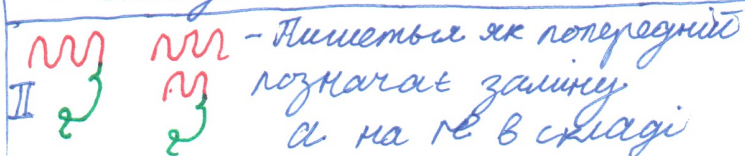 II – Пишеться як попередній
позначає заміну
а на ге в складі